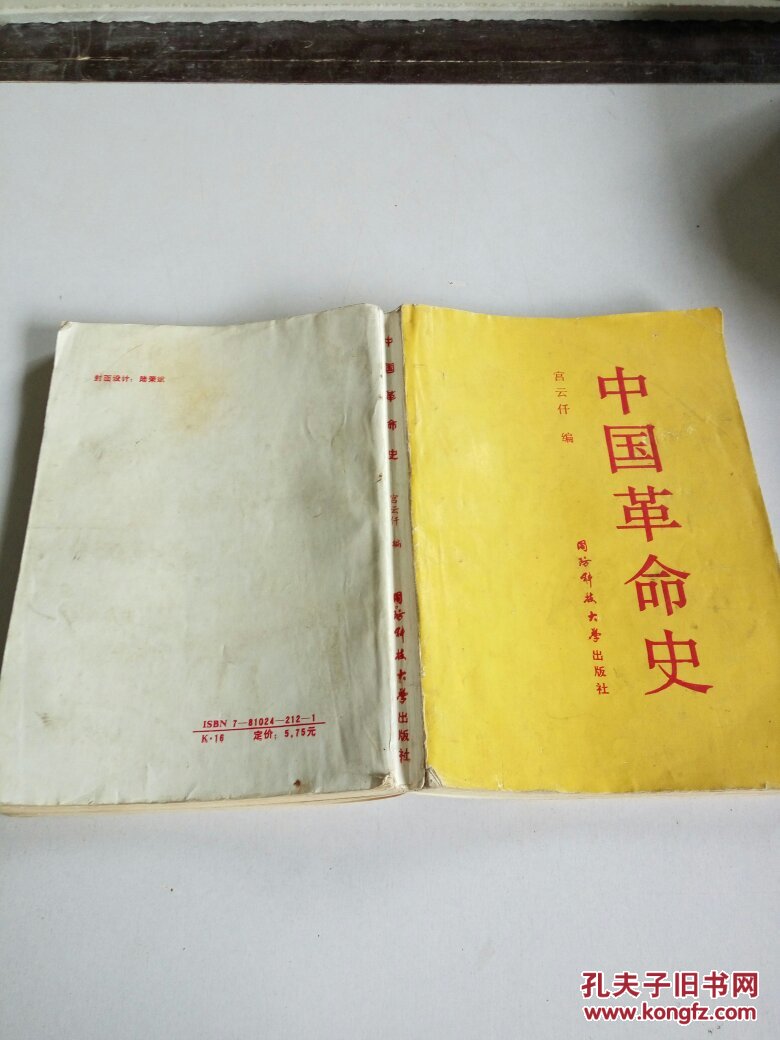 封面设计：陆荣斌
ISBN 7—81024—212—1
K·16 定价：5.75元
中国革命史
宫云仟 编
国防科技大学出版社
中国革命史
宫云仟 编
国防科技大学出版社
孔夫子旧书网
www.kongfz.com